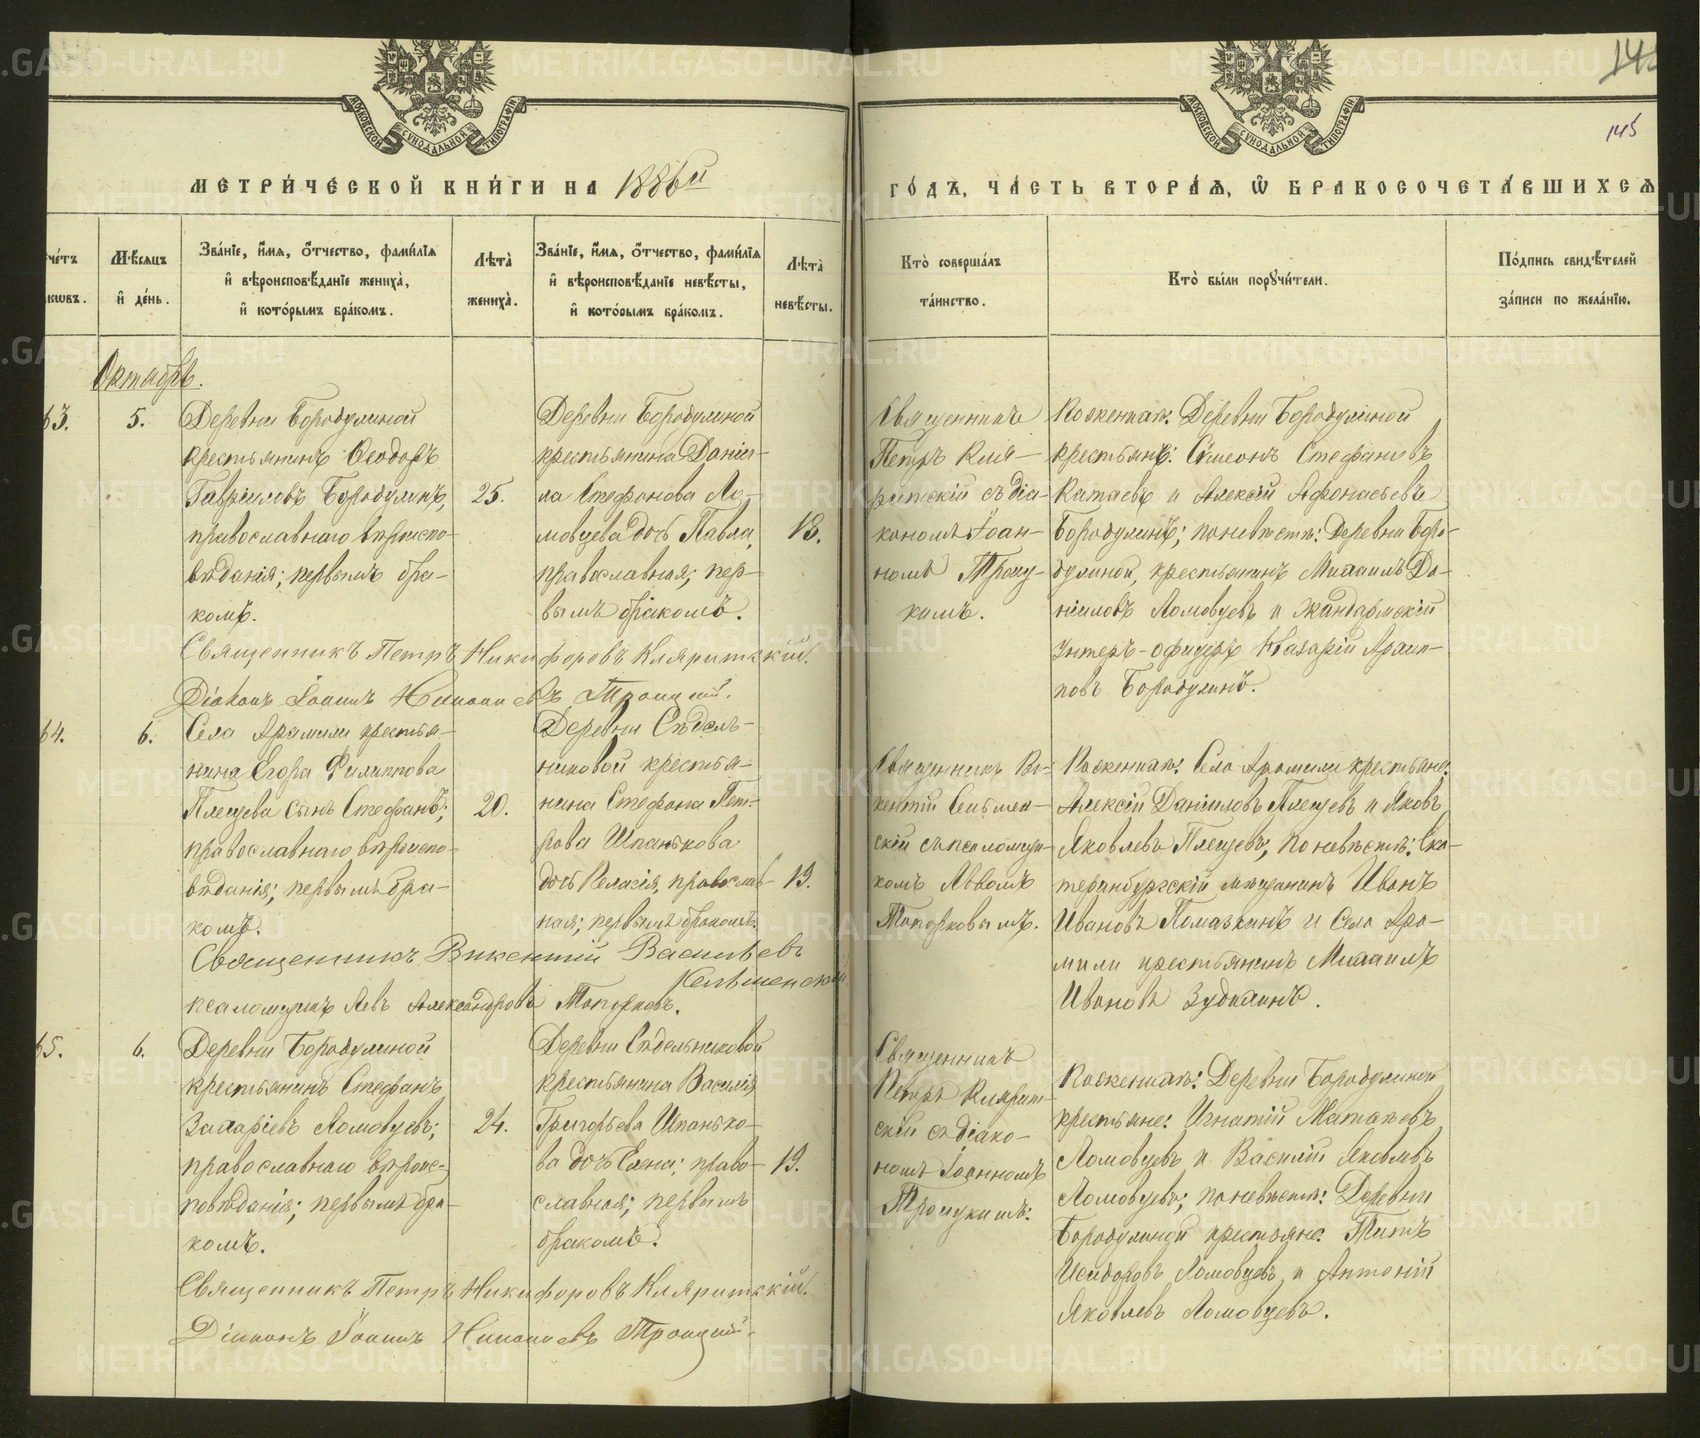 МЕТРИЧЕСКОЙ КНИГИ НА 1886й
ГОДЪ, ЧАСТЬ ВТОРАЯ, Ѡ БРАКОСОЧЕТАВШИХСЯ
145
МОСКОВСКОЙ СѴНОДАЛЬНОЙ ТИПОГРАФІИ
МОСКОВСКОЙ СѴНОДАЛЬНОЙ ТИПОГРАФІИ
Мѣсяцъ и день.
Званіе, имя, отчество, фамилія
и вѣроисповѣданіе жениха,
и которымъ бракомъ.
Лѣта
жениха.
Званіе, имя, отчество, фамилія
и вѣроисповѣданіе невѣсты,
и которымъ бракомъ.
Лѣта
невѣсты.
Кто совершалъ
таинство.
Кто были поручители.
Подпись свидѣтелей
записи по желанію.
Октябрь.
63.
5.
Деревни Бородулиной
крестьянинъ Ѳеодоръ
Гавріиловъ Бородулинъ,
православнаго вѣроиспо-
вѣданія; первымъ бра-
комъ.
25.
Деревни Бородулиной
крестьянина Даніи-
ла Стефонова Ло-
мовцева дочь Павла,
православная; пер-
вымъ бракомъ.
18.
Священникъ
Петръ Кля-
ритскій съ діа-
кономъ Іоан-
номъ Троиц-
кимъ.
По женихѣ: Деревни Бородулиной
крестьяне: Симеонъ Стефановъ
Катаевъ и Алексій Афонасьевъ
Бородулинъ; по невѣстѣ: Деревни Боро-
дулиной, крестьянинъ Михаилъ Да-
ніиловъ Ломовцевъ и жандармскій
унтеръ-офицеръ Назарій Архип-
повъ Бородулинъ.
Священникъ Петръ Никифоровъ Кляритскій.
Діаконъ Іоаннъ Троицкій.
64.
6.
Села Арамили крестья-
нина Егора Филиппова
Плещева сынъ Стефанъ;
православнаго вѣроиспо-
вѣданія; первымъ бра-
комъ.
20.
Деревни Сѣдель-
никовой крестья-
нина Стефана Пет-
рова Шпанькова
дочь Пелагія, православ-
ная; первымъ бракомъ.
19.
Священникъ Ви-
кентій
скій съ псаломщи-
комъ Львомъ
Топорковымъ.
По женихѣ: Села Арамили крестьяне:
Алексій Даніиловъ Плещевъ и Яковъ
Яковлевъ Плещевъ; по невѣстѣ: Ека-
теринбургскій мѣщанинъ Иванъ
Ивановъ Помазкинъ и Села Ара-
мили крестьянинъ Михаилъ
Ивановъ Зудихинъ.
Священникъ Викентій Васильевъ
псаломщикъ Левъ Александровъ Топорковъ.
65.
6.
Деревни Бородулиной
крестьянинъ Стефанъ
Захаріевъ Ломовцевъ;
православнаго вѣроис-
повѣданія; первымъ бра-
комъ.
24.
Деревни Сѣдельниковой
крестьянина Василія
Григорьева Шпанько-
ва дочь Елена; право-
славная; первымъ
бракомъ.
19.
Священникъ
Петръ Клярит-
скій съ діако-
номъ Іоанномъ
Троицкимъ.
По женихѣ: Деревни Бородулиной
крестьяне: Игнатій
Ломовцевъ и Василій Яковлевъ
Ломовцевъ; по невѣстѣ: Деревни
Бородулиной крестьяне: Титъ
Исидоровъ Ломовцевъ и Антоній
Яковлевъ Ломовцевъ.
Священникъ Петръ Никифоровъ Кляритскій.
Діаконъ Іоаннъ Троицкій.
METRIKI.GASO-URAL.RU